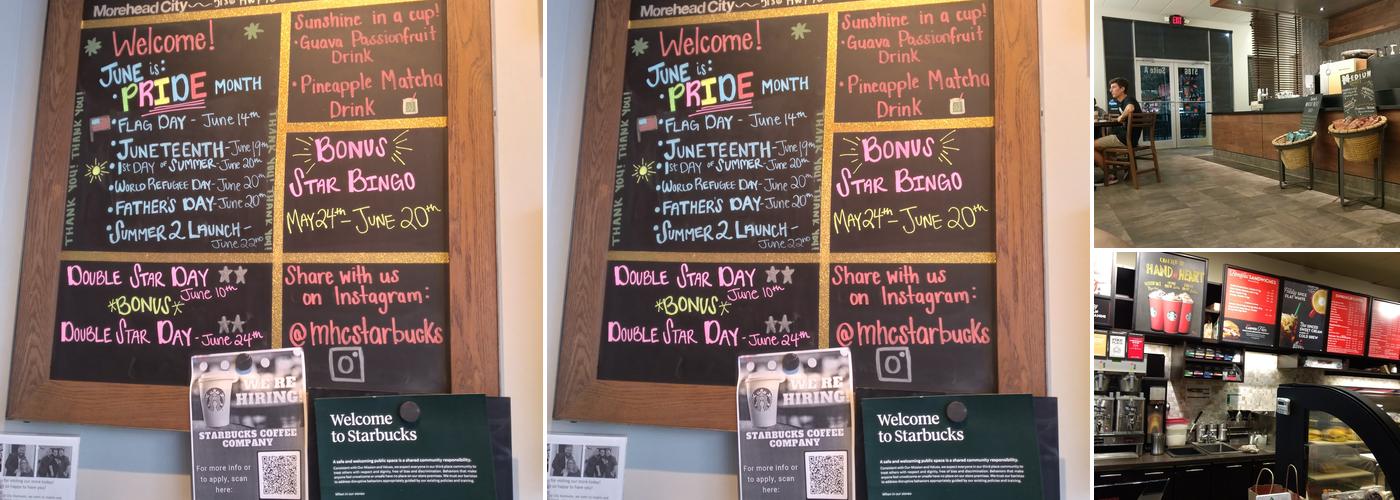 Morehead City
Welcome!
JUNE is:
PRIDE MONTH
•FLAG DAY - June 14th
•JUNETEENTH - June 19th
•1st DAY of SUMMER - June 20th
•WORLD REFUGEE DAY - June 20th
•FATHER'S DAY - June 20th
•SUMMER 2 LAUNCH -
June 22nd
THANK YOU! THANK YOU!
THANK YOU! THANK YOU!
Sunshine in a cup!
•Guava Passionfruit
Drink
•Pineapple Matcha
Drink
BONUS
STAR BINGO
MAY 24th - JUNE 20th
DOUBLE STAR DAY
June 10th
*BONUS*
DOUBLE STAR DAY - June 24th
Share with us
on Instagram:
@mhcstarbucks
WE'RE
HIRING!
STARBUCKS COFFEE
COMPANY
For more info or
to apply, scan
here:
Welcome
to Starbucks
A safe and welcoming public space is a shared community responsibility.
When in our stores
Morehead City
Welcome!
JUNE is:
PRIDE MONTH
•FLAG DAY - June 14th
•JUNETEENTH - June 19th
•1st DAY of SUMMER - June 20th
•WORLD REFUGEE DAY - June 20th
•FATHER'S DAY - June 20th
•SUMMER 2 LAUNCH -
June 22nd
THANK YOU! THANK YOU!
THANK YOU! THANK YOU!
Sunshine in a cup!
•Guava Passionfruit
Drink
•Pineapple Matcha
Drink
BONUS
STAR BINGO
MAY 24th - JUNE 20th
DOUBLE STAR DAY
June 10th
*BONUS*
DOUBLE STAR DAY - June 24th
Share with us
on Instagram:
@mhcstarbucks
WE'RE
HIRING!
STARBUCKS COFFEE
COMPANY
For more info or
to apply, scan
here:
Welcome
to Starbucks
A safe and welcoming public space is a shared community responsibility.
When in our stores
EXIT
HAND HEART
SANDWICHES
FLAT WHITE